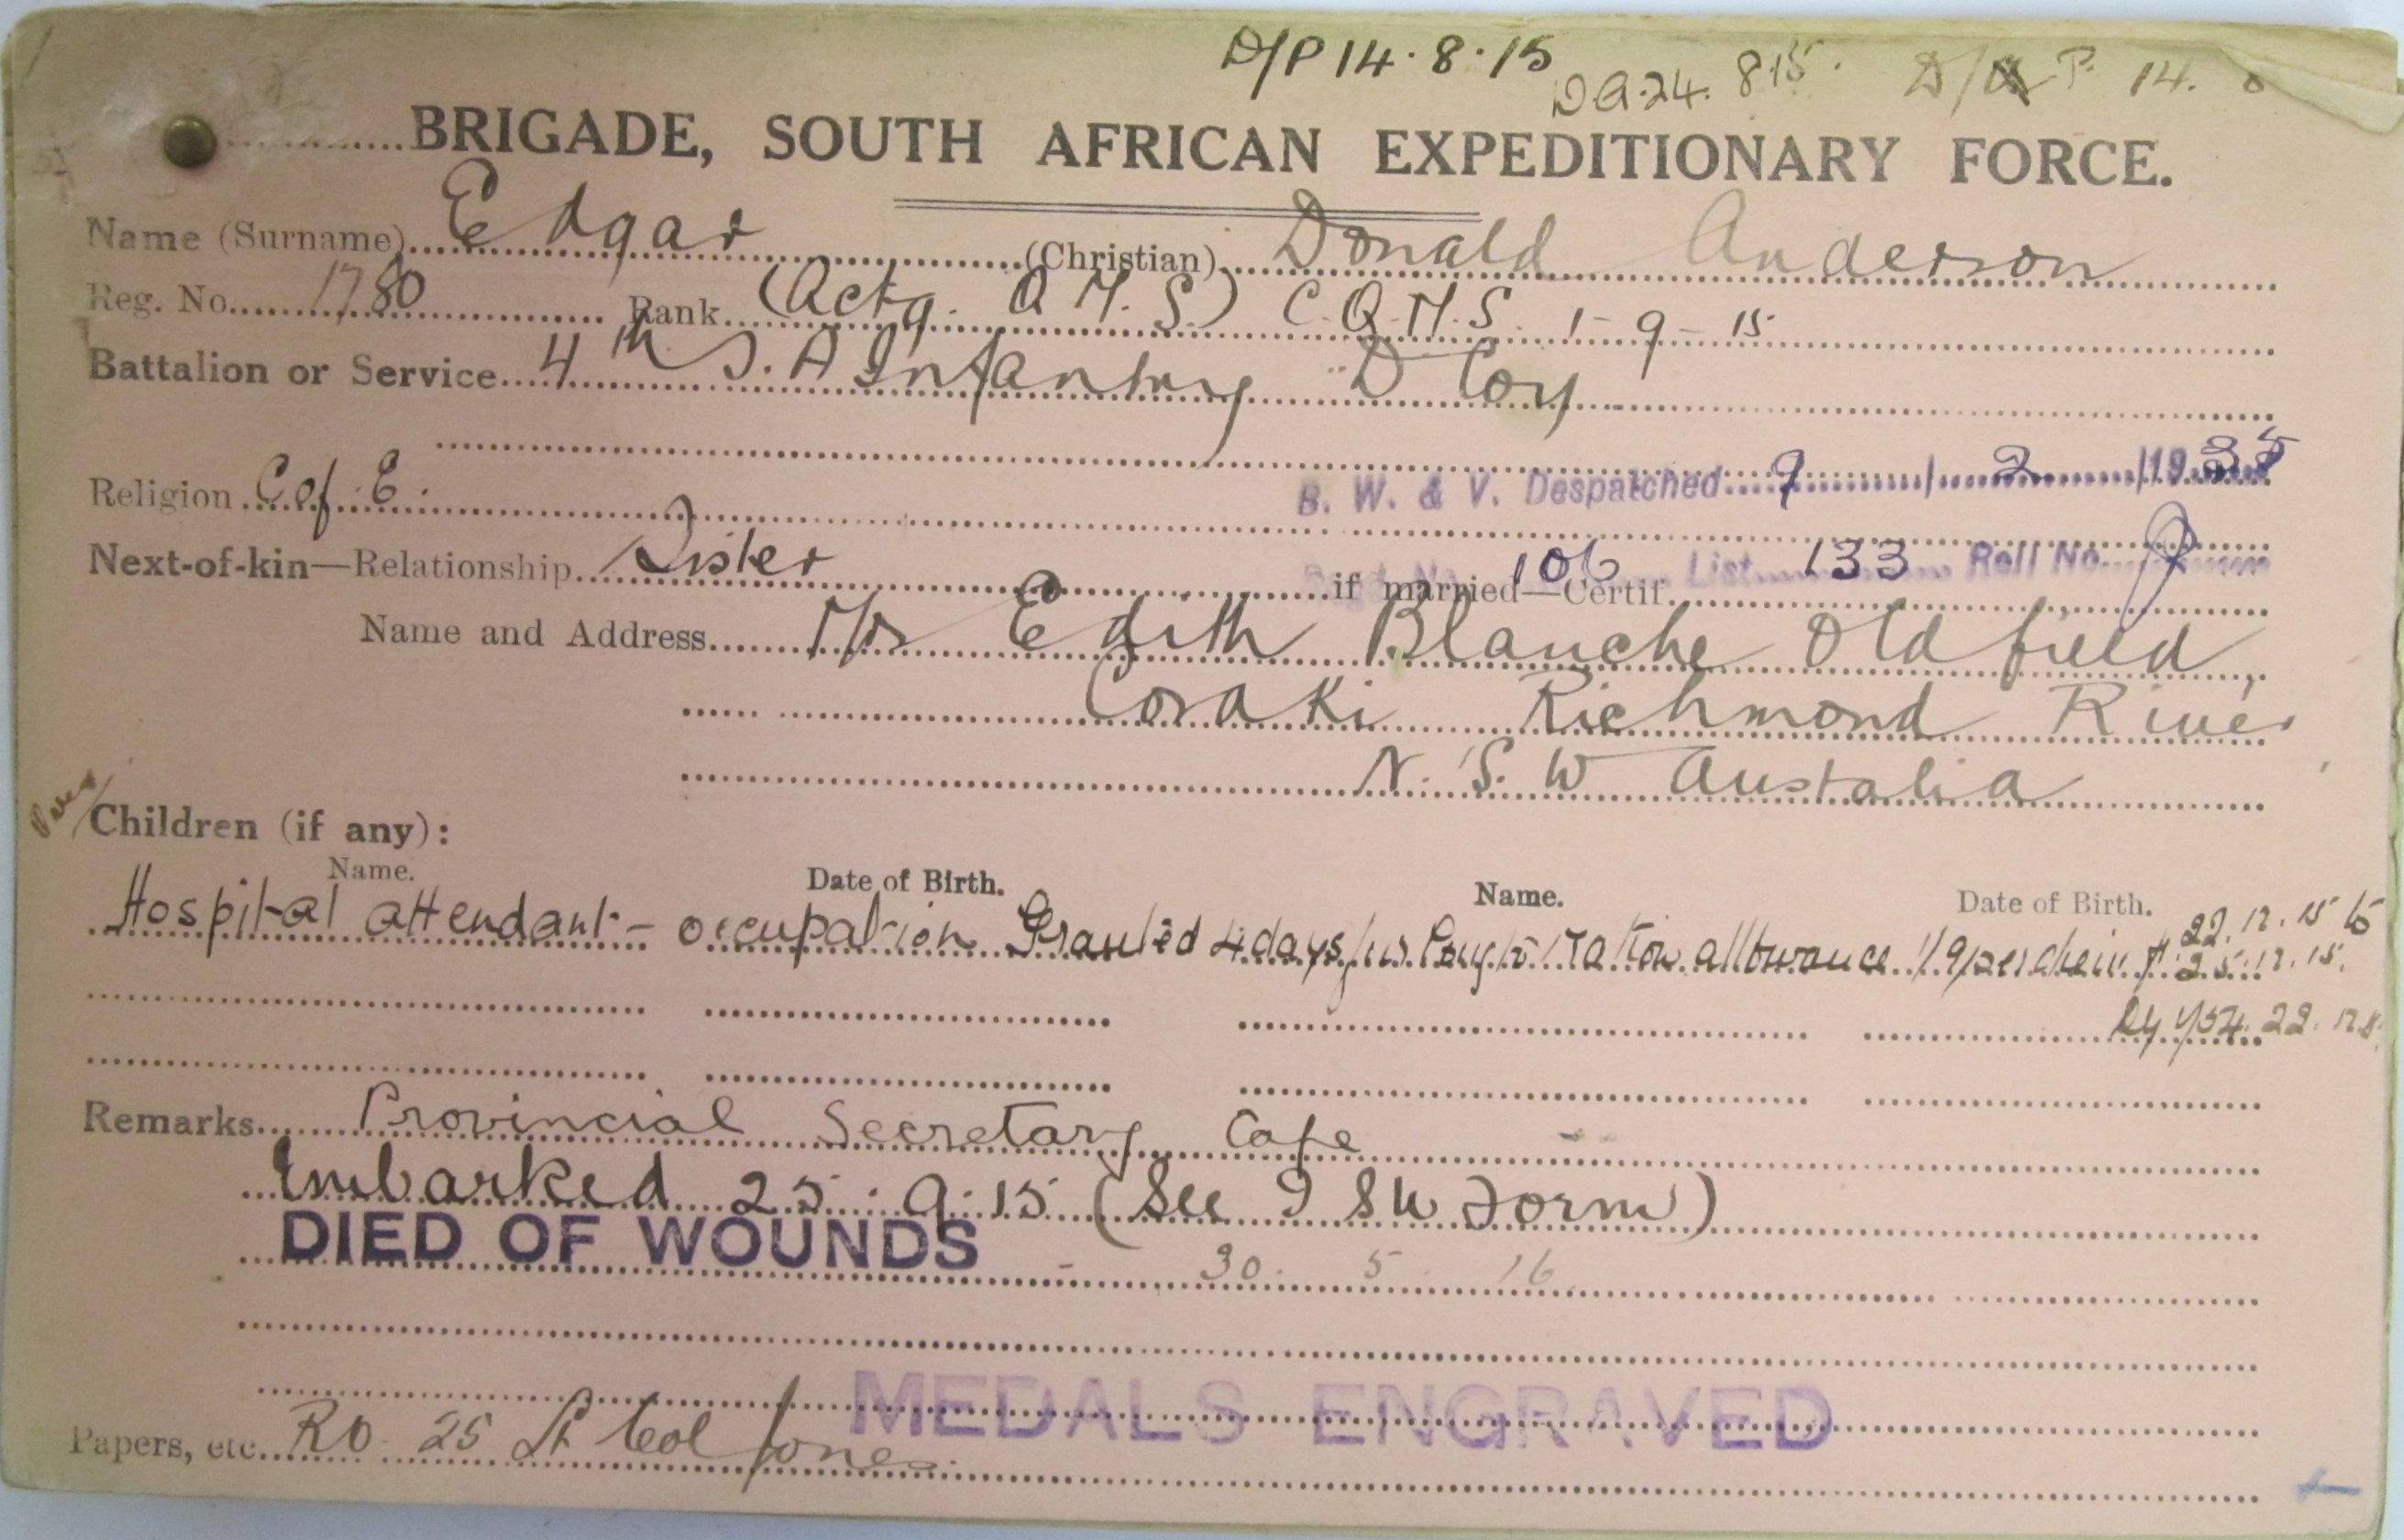 D/P 14.8.15
DA.24. 8.15. D/A P. 14. 8
BRIGADE, SOUTH AFRICAN EXPEDITIONARY FORCE.
Name (Surname) Edgar (Christian) Donald Anderson
Reg. No. 1780 Rank (Actg. Q.M.S.) C.Q.M.S. 1-9-15
Battalion or Service 4th S.A Infantry "D Coy
B. W. & V. Despatched 9/2/19
Religion C of E.
106 List 133 Roll No.
Next-of-kin—Relationship Sister if married—Certif.
Name and Address Mrs Edith Blanche Oldfield,
Coraki Richmond River
N. S. W Austalia
Children (if any):
Name. Date of Birth. Name. Date of Birth.
Hospital attendant - occupation Granted 4 days allowance 1/9 per diem 22.12.15 to
25.12.15.
Remarks Provincial Secretary Cape
Embarked 25.9.15 (See Form)
DIED OF WOUNDS - 30. 5 16.
MEDALS ENGRAVED
Papers, etc. RO 25 Lt Col Jones